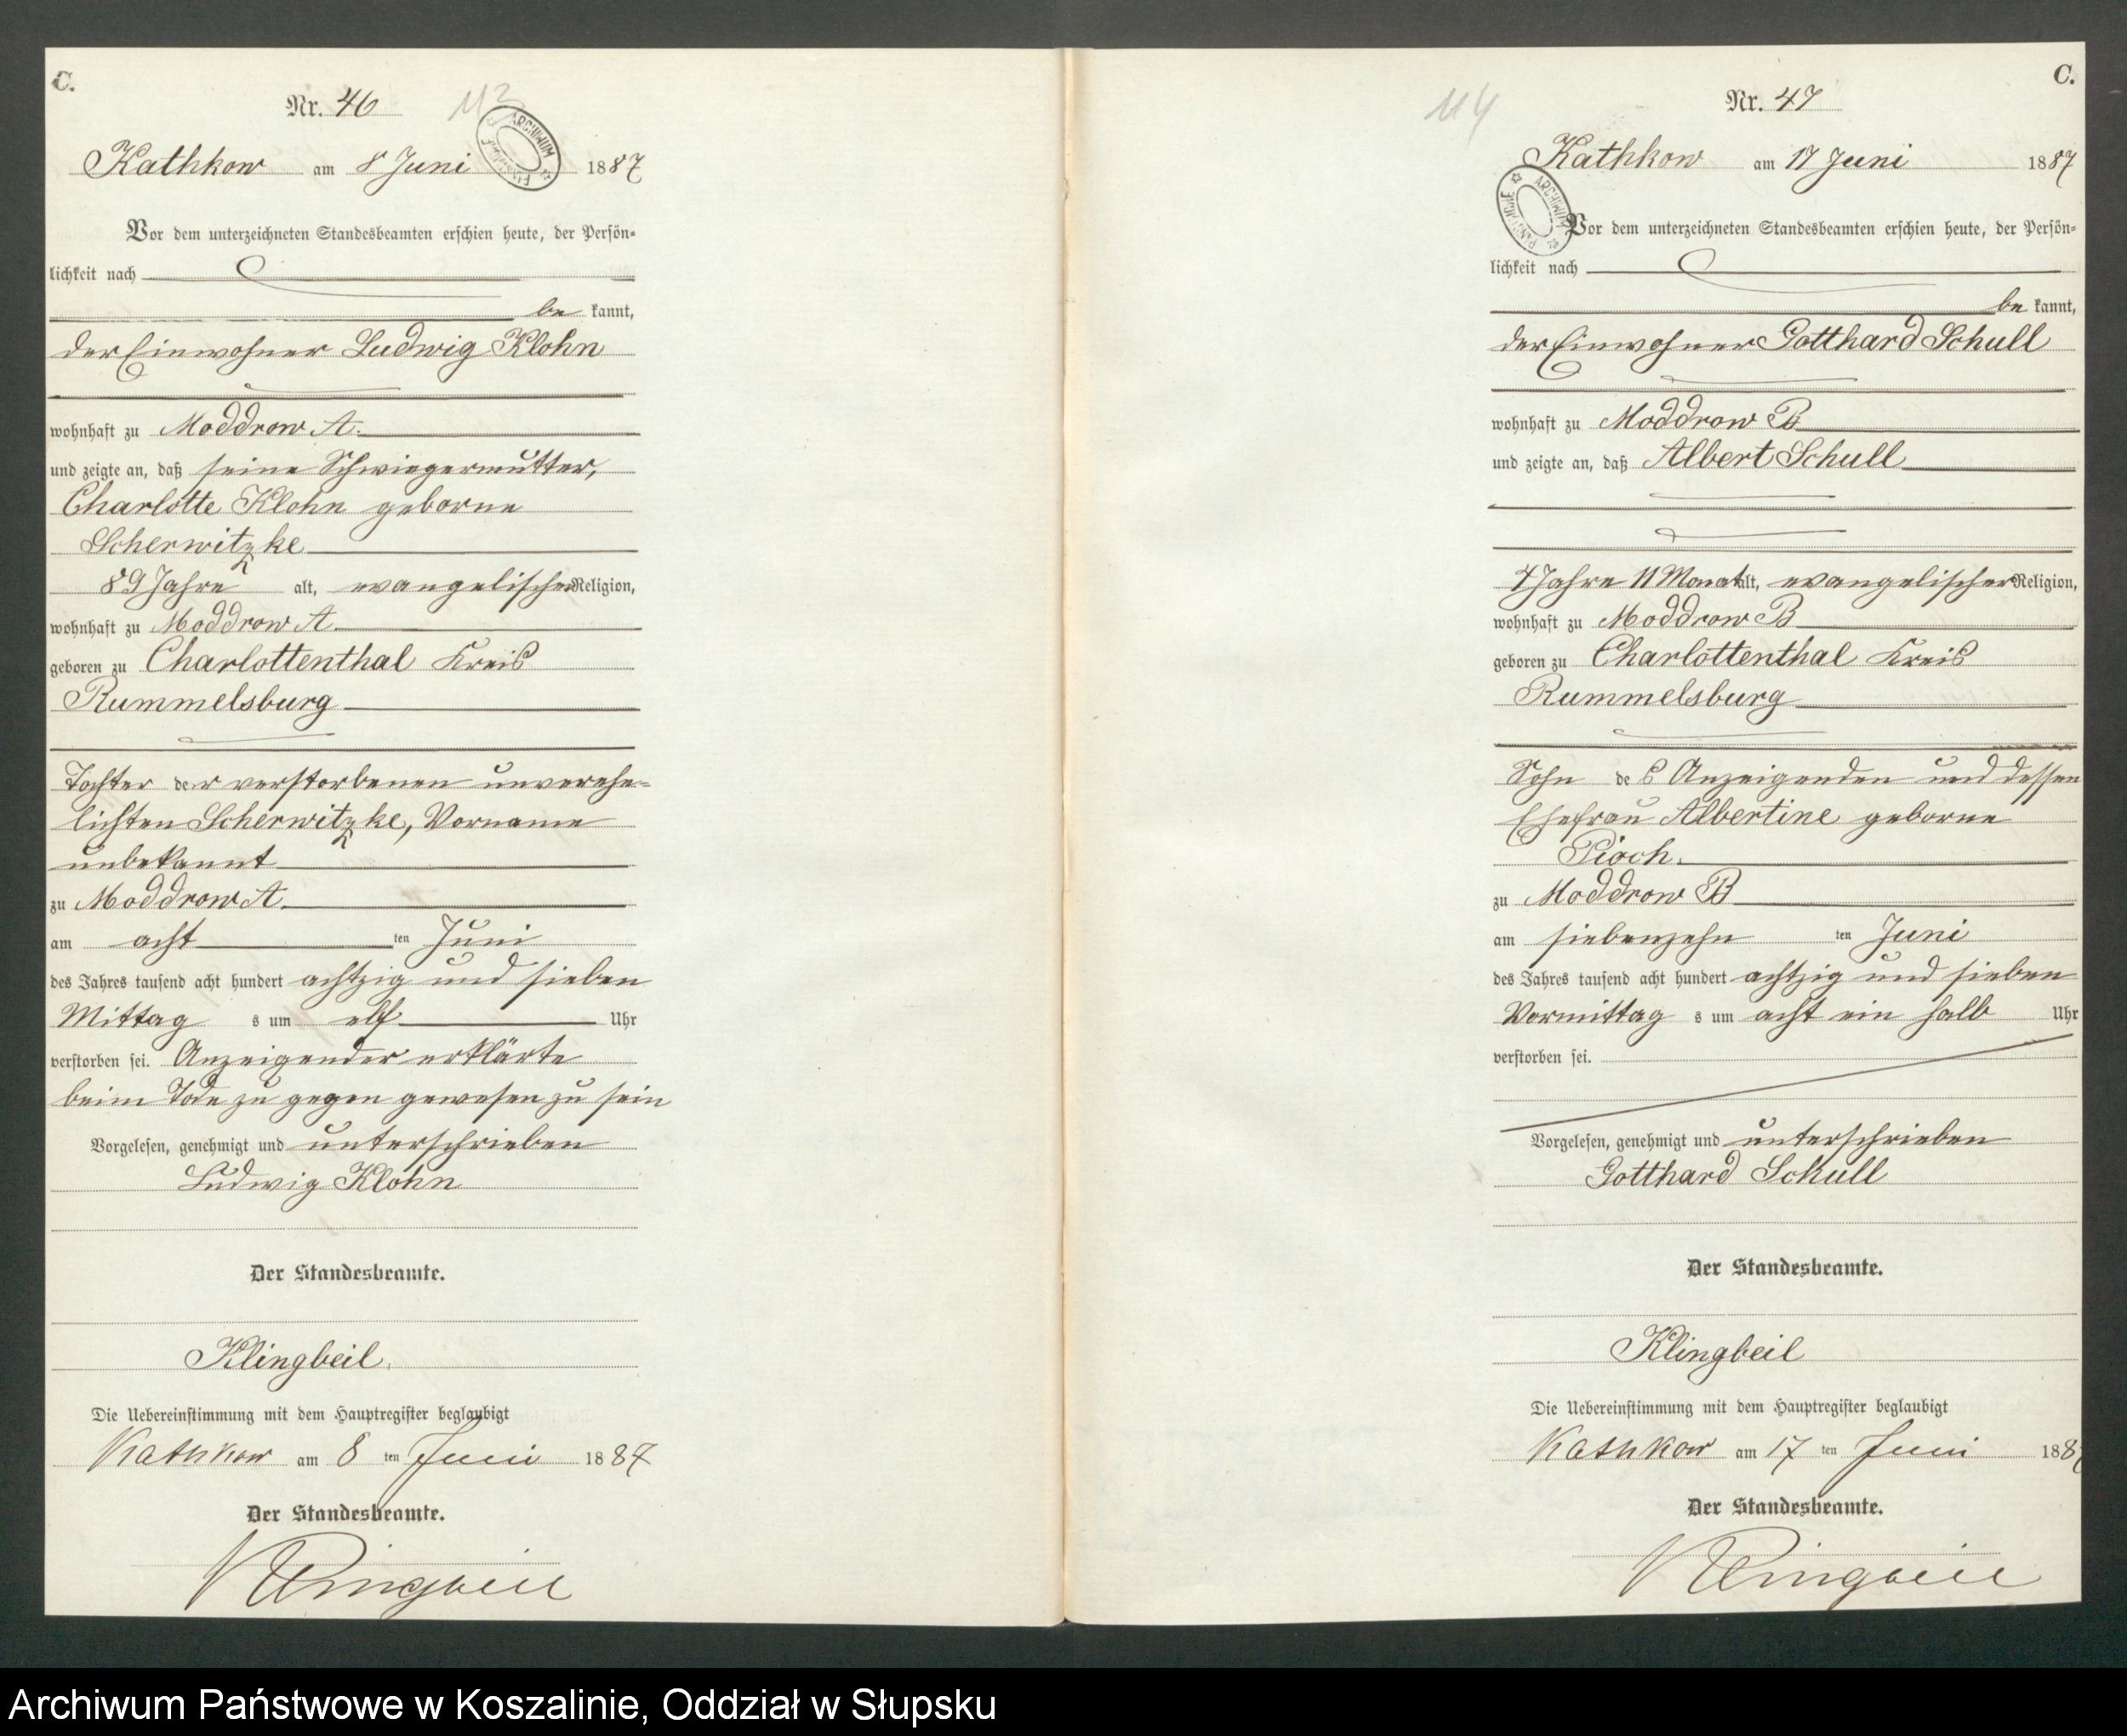 C.
Nr. 46
113
ARCHIWUM
Kathkow am 8 Juni 1887
Vor dem unterzeichneten Standesbeamten erschien heute, der Persön-
lichkeit nach
be kannt,
der Einwohner Ludwig Klohn
wohnhaft zu Moddrow A.
und zeigte an, daß seine Schwiegermutter,
Charlotte Klohn geborne
Scherwitzke
89 Jahre alt, evangelischer Religion,
wohnhaft zu Moddrow A.
geboren zu Charlottenthal Kreis
Rummelsburg
Tochter der verstorbenen unverehe-
lichten Scherwitzke, Vorname
unbekannt
zu Moddrow A.
am acht ten Juni
des Jahres tausend acht hundert achtzig und sieben
Mittag s um elf Uhr
verstorben sei. Anzeigender erklärte
beim Tode zu gegen gewesen zu sein
Vorgelesen, genehmigt und unterschrieben
Ludwig Klohn
Der Standesbeamte.
Klingbeil.
Die Uebereinstimmung mit dem Hauptregister beglaubigt
Kathkow am 8 ten Juni 1887
Der Standesbeamte.
Klingbeil
C.
Nr. 47
114
Kathkow am 17 Juni 1887
PAŃSTWOWE ARCHIWUM
Vor dem unterzeichneten Standesbeamten erschien heute, der Persön-
lichkeit nach
be kannt,
der Einwohner Gotthard Schull
wohnhaft zu Moddrow B
und zeigte an, daß Albert Schull
4 Jahre 11 Monat alt, evangelischer Religion,
wohnhaft zu Moddrow B
geboren zu Charlottenthal Kreis
Rummelsburg
Sohn de s Anzeigenden und dessen
Ehefrau Albertine geborne
Pioch.
zu Moddrow B
am siebenzehn ten Juni
des Jahres tausend acht hundert achtzig und sieben
Vormittag s um acht ein halb Uhr
verstorben sei.
Vorgelesen, genehmigt und unterschrieben
Gotthard Schull
Der Standesbeamte.
Klingbeil
Die Uebereinstimmung mit dem Hauptregister beglaubigt
Kathkow am 17 ten Juni 1887
Der Standesbeamte.
Klingbeil
Archiwum Państwowe w Koszalinie, Oddział w Słupsku